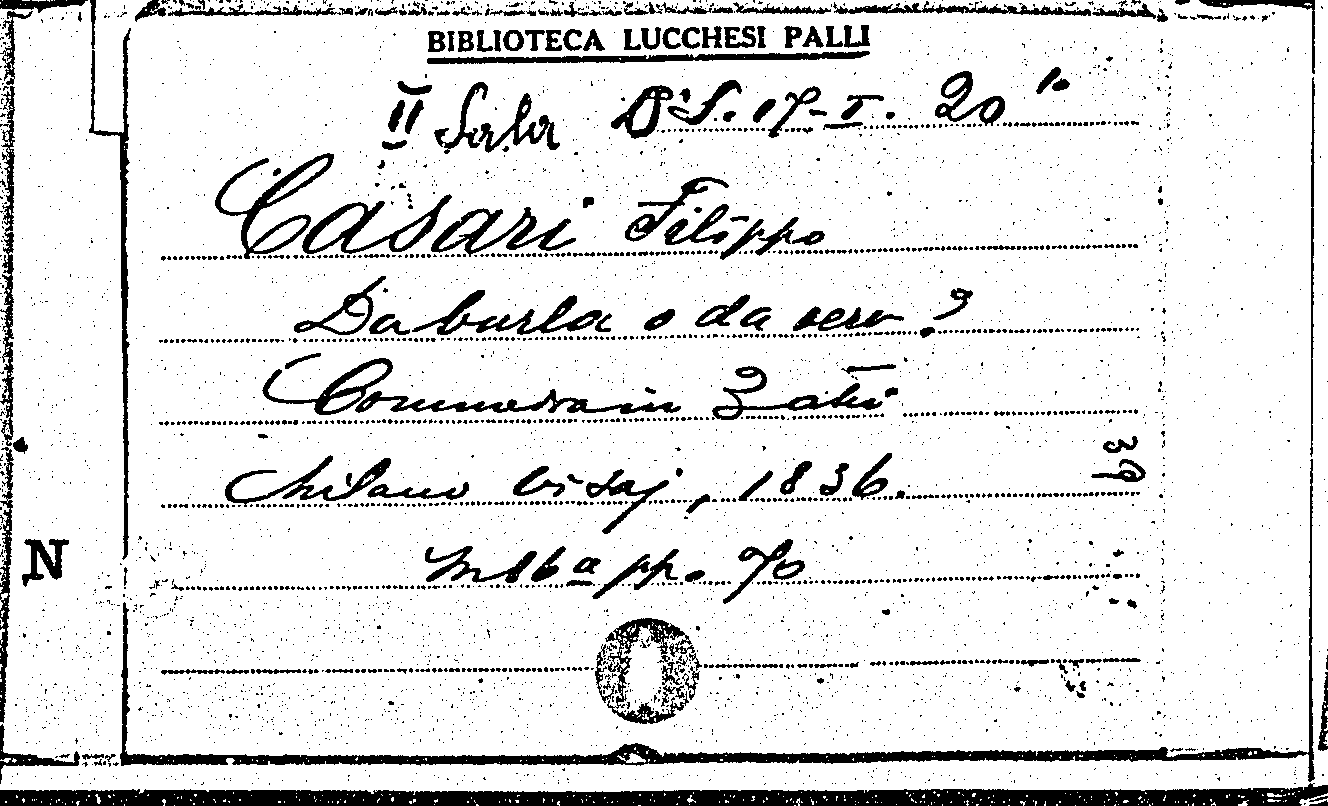 BIBLIOTECA LUCCHESI PALLI
II Sala S. 17-I. 20
Casari Filippo
Da burla o da vero?
Commedia in 3 atti
39
Milano Visaj, 1836.
In 16ª pp. 70
N